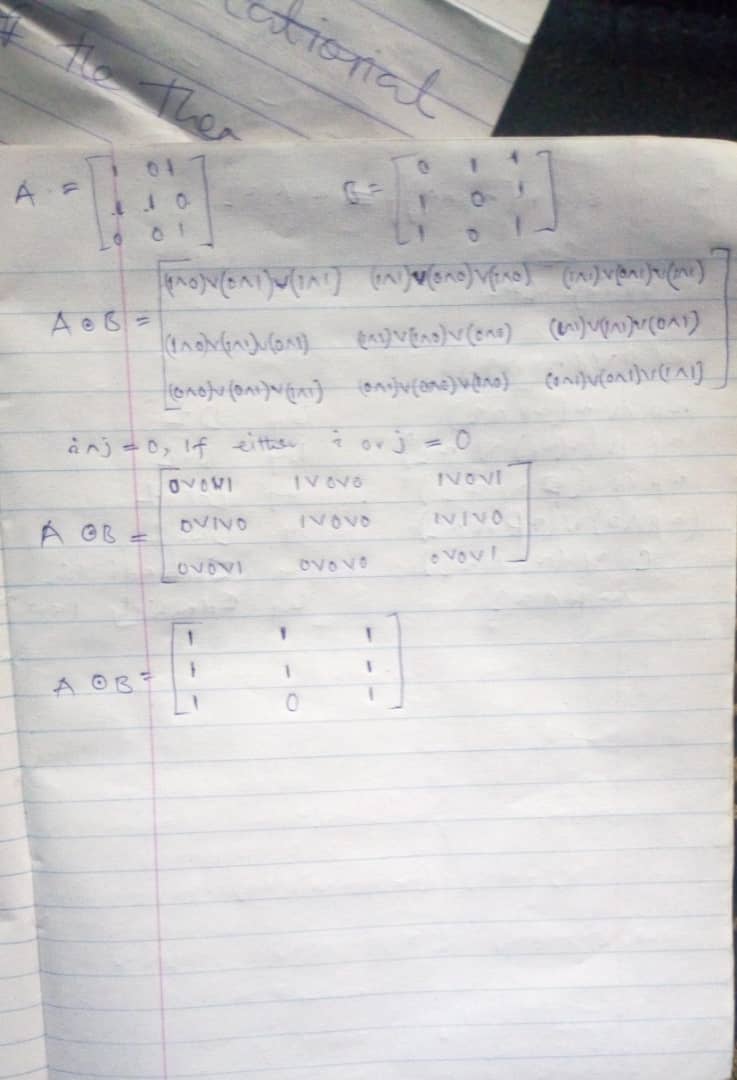 ational
the then
A = [1 0 1
1 1 0
0 0 1]
B = [0 1 1
1 0 1
1 0 1]
A ⊙ B = [(1∧0)∨(0∧1)∨(1∧1) (1∧1)∨(0∧0)∨(1∧0) (1∧1)∨(0∧1)∨(1∧1)
(1∧0)∨(1∧1)∨(0∧1) (1∧1)∨(1∧0)∨(0∧0) (1∧1)∨(1∧1)∨(0∧1)
(0∧0)∨(0∧1)∨(1∧1) (0∧1)∨(0∧0)∨(1∧0) (0∧1)∨(0∧1)∨(1∧1)]
i∧j = 0, if either i or j = 0
A ⊙ B = [0∨0∨1 1∨0∨0 1∨0∨1
0∨1∨0 1∨0∨0 1∨1∨0
0∨0∨1 0∨0∨0 0∨0∨1]
A ⊙ B = [1 1 1
1 1 1
1 0 1]